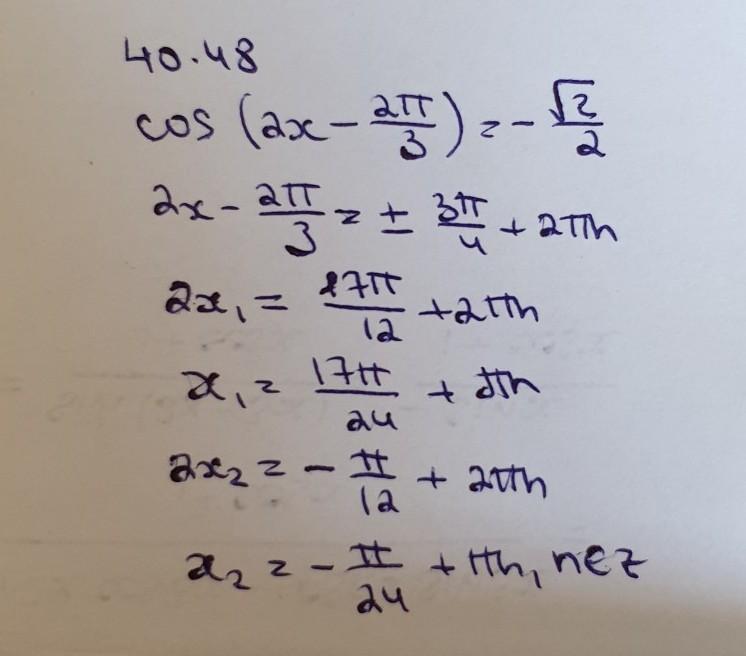 40.48
cos (2x - 2π/3) = - √2/2
2x - 2π/3 = ± 3π/4 + 2πn
2x₁ = 17π/12 + 2πn
x₁ = 17π/24 + πn
2x₂ = - π/12 + 2πn
x₂ = - π/24 + πn, n∈z